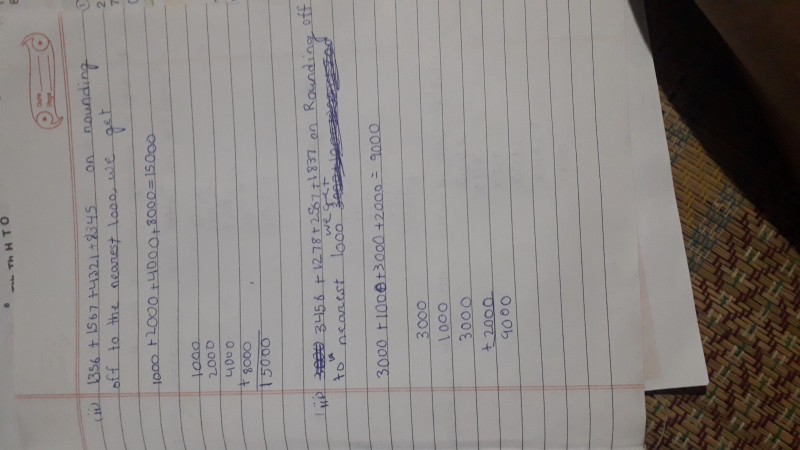 Th H T O
Date
Page
(ii) 1356 + 1567 + 4321 + 8345 on rounding
off to the nearest 1000, we get
1000 + 2000 + 4000 + 8000 = 15000
1000
2000
4000
+ 8000
15000
(iii) 3456 + 1278 + 2567 + 1837 on Rounding off
to nearest 1000 we get
3000 + 1000 + 3000 + 2000 = 9000
3000
1000
3000
+ 2000
9000